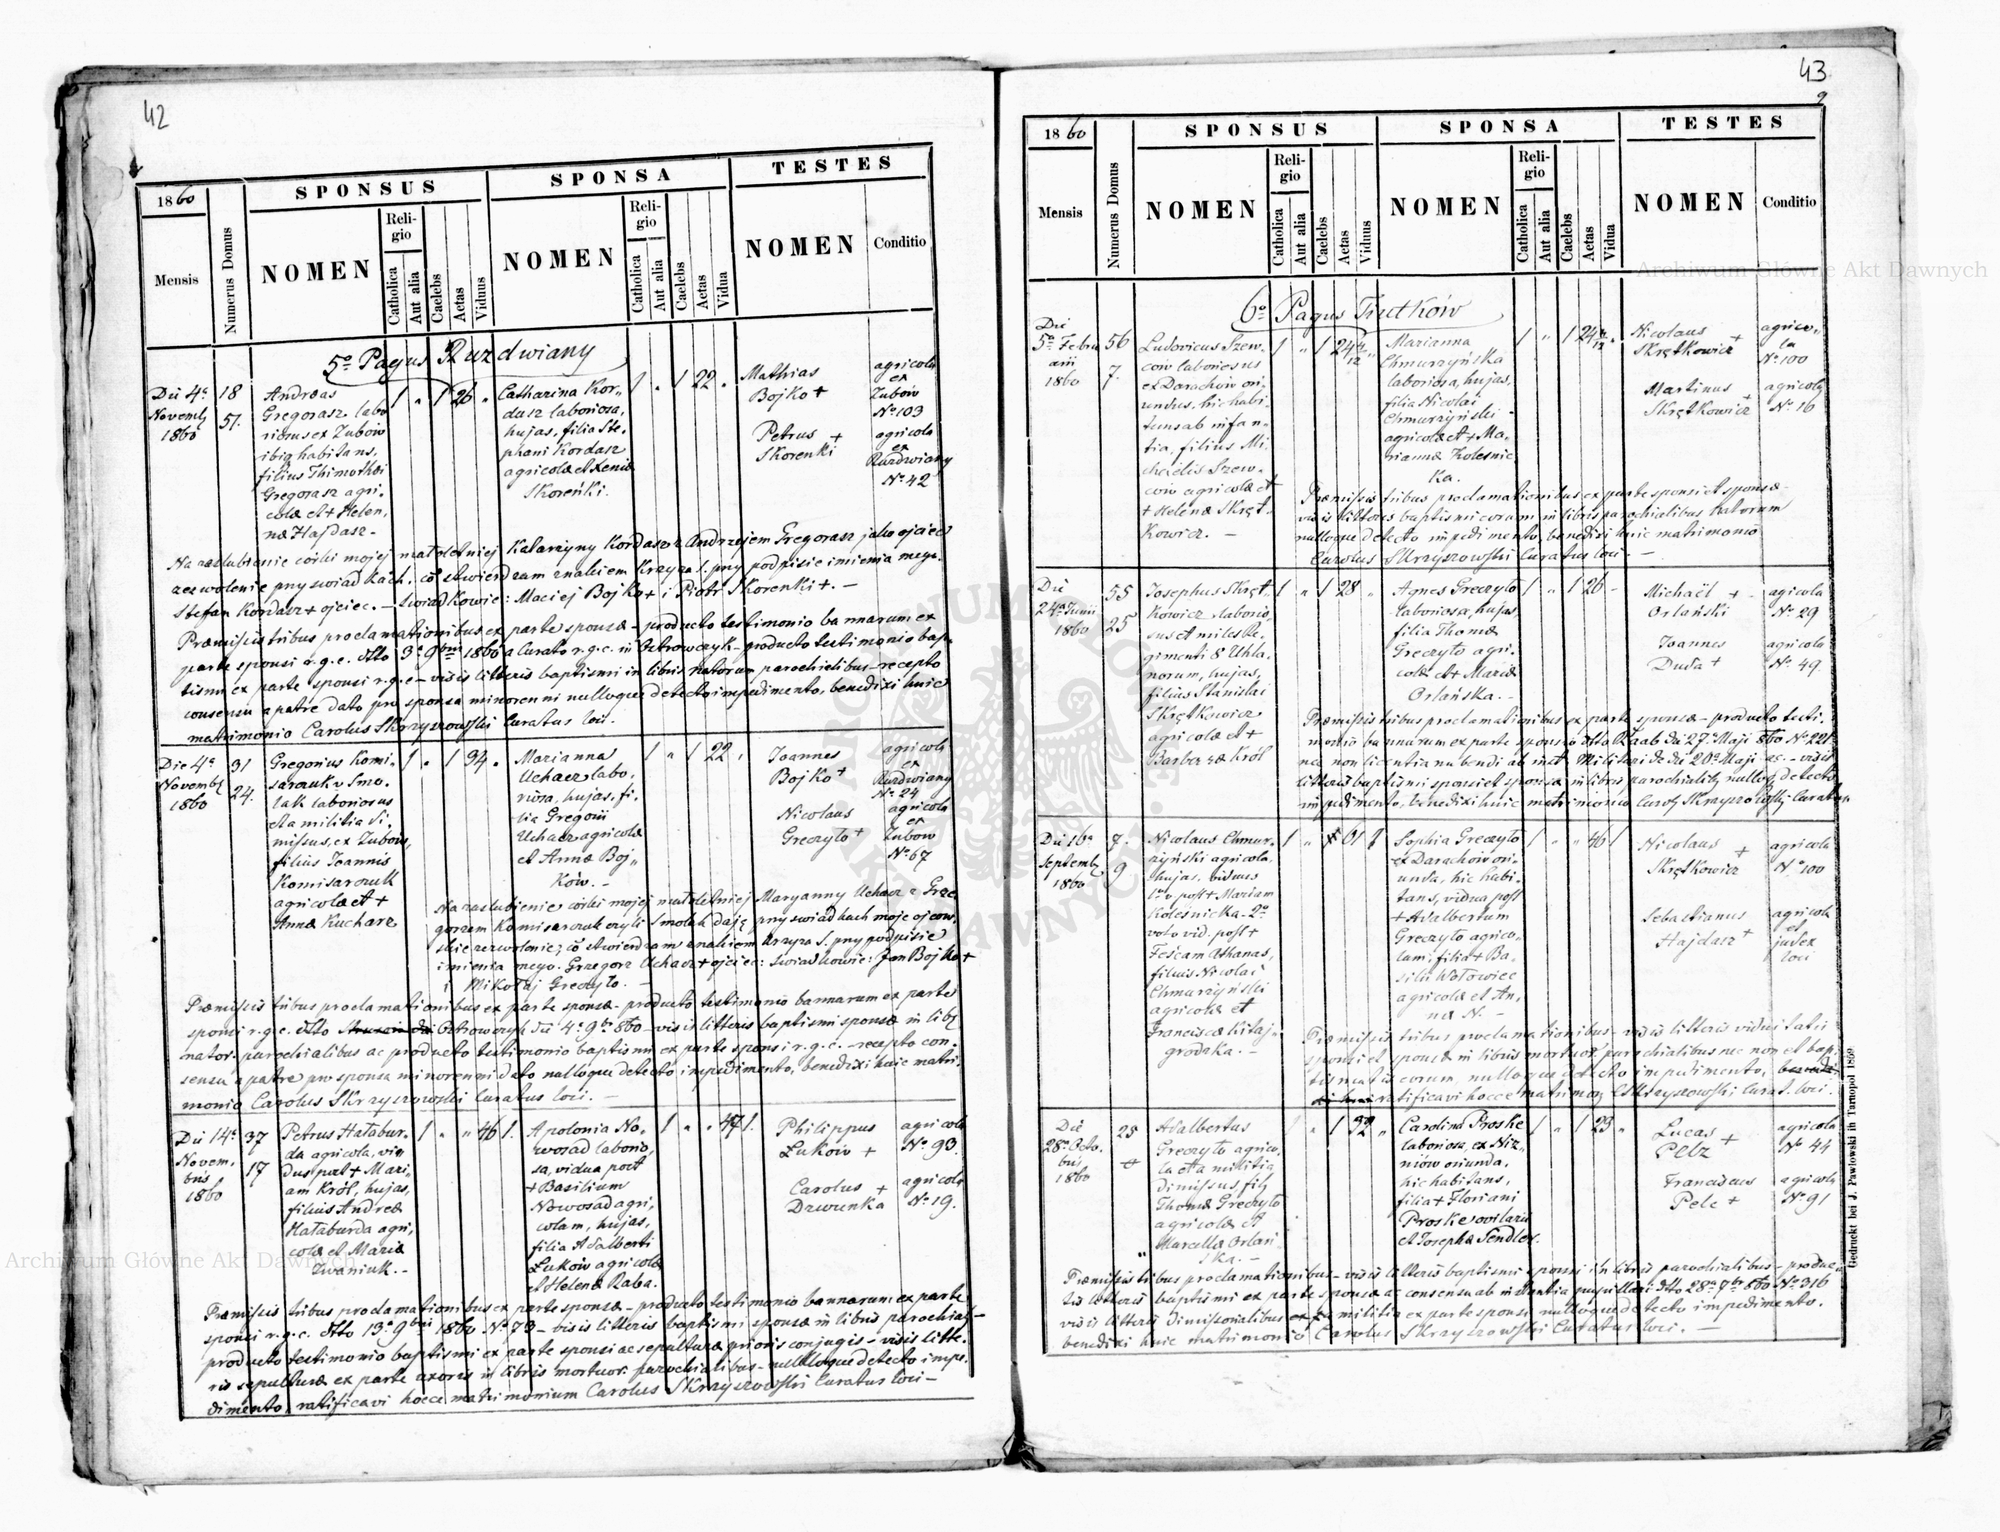 42
1860
Mensis
Numerus Domus
SPONSUS
NOMEN
Religio
Catholica
Aut alia
Caelebs
Aetas
Viduus
SPONSA
NOMEN
Religio
Catholica
Aut alia
Caelebs
Aetas
Vidua
TESTES
NOMEN
Conditio
5o Pagus Ruzdwiany
Die 4a
Novemb
1860
18
51.
Andreas
Gregorasz labo
riosus ex Zubow
ibig habitans,
filius Thimothei
Gregorasz agri-
colæ et + Helen,
næ Hajdasz-
1 " 1 26 "
Catharina Kor-
dasz laboriosa,
hujas, filia Ste-
phani Kordasz
agricolæ et Xeniæ
Skoreńki.
1 " 1 22 "
Mathias
Bojko +
Petrus +
Skorenki
agricola
ex
Zubów
No 103
agricola
ex
Ruzdwiany
No 42
Na zaslubienie córki mojej małoletniej Katarzyny Kordasz z Andrzejem Gregorasz jako ojciec
zezwolenie przy swiadkach, co stwierdzam znakiem Krzyża S. przy podpisie imienia mego.
Stefan Kordasz + ojciec. - Swiadkowie: Maciej Bojko + i Piotr Skorenki +. -
Præmissis tribus proclamationibus ex parte sponsæ - producto testimonio bannarum ex
parte sponsi r.g.c. dtto 3o 9bris 1860 a Curato r.g.c. in Ostrowczyk - producto testimonio bap-
tismi ex parte sponsi r.g.c - visis litteris baptismi in libris natorum parochialibus - recepto
consensu a patre dato pro sponsa minorenni nulloque detecto impedimento, benedixi huic
matrimonio Carolus Skrzyszowski Curatus loci.
Die 4a
Novemb
1860
31
24.
Gregorius Komi-
sarczuk v. Smo-
lak laboriosus
et a militia di-
missus, ex Zubow,
filius Joannis
Komisarczuk
agricolæ et +
Annæ Kucharz
1 " 1 34 "
Marianna
Uchacz labo,
riosa, hujas, fi-
lia Gregorii
Uchacz agricolæ
et Annæ Boj-
ków. -
1 " 1 22 "
Joannes
Bojko +
Nicolaus
Greczyło +
agricola
ex
Ruzdwiany
No 24
agricola
ex
Zubow
No 67
Na zaslubienie córki mojej małoletniej Maryanny Uchacz z Grze-
gorzem Komisarczuk czyli Smolak daję przy swiadkach moje ojcow-
skie zezwolenie, co stwierdzam znakiem krzyża S. przy podpisie
imienia mego. Grzegorz Uchacz + ojciec: Swiadkowie: Jan Bojko +
i Mikołaj Greczyło. -
Præmissis tribus proclamationibus ex parte sponsæ - producto testimonio bannarum ex parte
sponsi r.g.c. dtto Ostrowczyk die 4a 9bris 860 - visis litteris baptismi sponsæ in lib
nator. parochialibus ac producto testimonio baptismi ex parte sponsi r.g.c. - recepto con-
sensu a patre pro sponsa minorenni dato nulloque detecto impedimento, benedixi huic matri-
monio Carolus Skrzyszowski Curatus loci. -
Die 14a
Novem-
bris
1860
37
17
Petrus Hałabur-
da agricola, vi-
duus post + Mari-
am Król, hujas,
filius Andreæ
Hałaburda agri-
colæ et Mariæ
Iwaniuk. -
1 " " 46 1.
Apolonia No-
wosad laborio-
sa, vidua post
+ Basilium
Nowosad agri-
colam, hujas,
filia Adalberti
Łuków agricolæ
et Helenæ Raba.
1 " " 47 1.
Philippus
Łuków +
Carolus +
Dzwunka
agricola
No 93.
agricola
No 19.
Præmissis tribus proclamationibus ex parte sponsæ - producto testimonio bannarum ex parte
sponsi r.g.c. dtto 13o 9bris 1860 No 73 - visis litteris baptismi sponsæ in libris parochial-
producto testimonio baptismi ex parte sponsi ac sepulturæ prioris conjugis - visis litte-
ris sepulturæ ex parte uxoris in libris mortuor. parochialibus - nulloque detecto impe-
dimento, ratificavi hocce matrimonium Carolus Skrzyszowski Curatus loci -
43
9
1860
Mensis
Numerus Domus
SPONSUS
NOMEN
Religio
Catholica
Aut alia
Caelebs
Aetas
Viduus
SPONSA
NOMEN
Religio
Catholica
Aut alia
Caelebs
Aetas
Vidua
TESTES
NOMEN
Conditio
6o Pagus Tiutków
Die
5a Febru
arii
1860
56
7.
Ludovicus Szew-
ców laboriosus
ex Darachów ori-
undus, hic habi-
tans ab infan-
tia, filius Mi-
chaelis Szew-
ców agricolæ et
+ Helenæ Skręt-
kowicz. -
1 " 1 24
Marianna
Chmurzyńska
laboriosa, hujas,
filia Nicolai
Chmurzyński
agricolæ et + Ma-
riannæ Kolesnic
ka.
1 " 1 24
Nicolaus +
Skrętkowicz
Martinus +
Skrętkowicz
agrico-
la
No 100
agricola
No 16
Præmissis tribus proclamationibus ex parte sponsi et sponsæ -
visis litteris baptismi eorum in libris parochialibus natorum
nulloque detecto impedimento, benedixi huic matrimonio
Carolus Skrzyszowski Curatus loci -
Die
24a Junii
1860
55
25
Josephus Skręt-
kowicz laborio,
sus et miles Re-
gimenti 8 Uhla-
norum, hujas,
filius Stanislai
Skrętkowicz
agricolæ et +
Barbaræ Król
1 " 1 28 "
Agnes Greczyło
laboriosa, hujas,
filia Thomæ
Greczyło agri-
colæ et + Mariæ
Orlańska. -
1 " 1 26 -
Michaël + -
Orlański
Joannes
Duda +
agricola
No 29
agricola
No 49
Præmissis tribus proclamationibus ex parte sponsæ - producto testi-
monio bannarum ex parte sponsi dtto Raab die 27a Maji 860 No 221
nec non licentia nubendi ab inst Militari de die 20a Maji ac - visis
litteris baptismi sponsi et sponsæ in libris parochialib nulloq detecto
impedimento, benedixi huic matrimonio Carol Skrzyszowski Curatus
Die 16a
Septemb
1860
7.
9
Nicolaus Chmur-
zyński agricola,
hujas, viduus
1o v. post + Mariam
Kolesnicka - 2o
voto vid. post +
Feskam Athanas,
filius Nicolai
Chmurzyński
agricolæ et
Franciscæ Kitaj-
grodzka. -
1 " 61 1
Sophia Greczyło
ex Darachów ori-
unda, hic habi-
tans, vidua post
+ Adalbertum
Greczyło agrico-
lam, filia + Ba-
silii Wołowiec
agricolæ et An,
næ N. -
1 " " 46 1
Nicolaus +
Skrętkowicz
Sebastianus
Hajdasz +
agricola
No 100
agricola
et
judex
loci
Præmissis tribus proclamationibus - visis litteris viduitatis
sponsi et sponsæ in libris mortuor parochialibus nec non et bap-
tismatis eorum, nulloque detecto impedimento,
ratificavi hocce matrimon. C. Skrzyszowski Curat. loci.
Die
28a Octo-
bris
1860
25
Adalbertus
Greczyło agrico-
la et a militia
dimissus, fil
Thomæ Greczyło
agricolæ et
Marcellæ Orlań-
ska. -
" 1 32 "
Carolina Proske
laboriosa, ex Niz-
niów oriunda,
hic habitans,
filia + Floriani
Proske ovilarii
et Josephæ Sendler.
1 " 1 23 "
Lucas +
Pelz
Franciscus
Pelc +
agricola
No 44
agricola
No 91
Præmissis tribus proclamationibus - visis litteris baptismi sponsi in libris parochialibus - produc-
tis litteris baptismi ex parte sponsæ ac consensu ab instantia pupillari dtto 28a 7bris 860 No 316
visis litteris dimissionalibus militia ex parte sponsi nulloque detecto impedimento.
benedixi huic matrimonio Carolus Skrzyszowski Curatus loci. -
Gedruckt bei J. Pawlowski in Tarnopol 1859.
Archiwum Główne Akt Dawnych
Archiwum Główne Akt Dawnych
ARCHIWUM GŁÓWNE AKT DAWNYCH